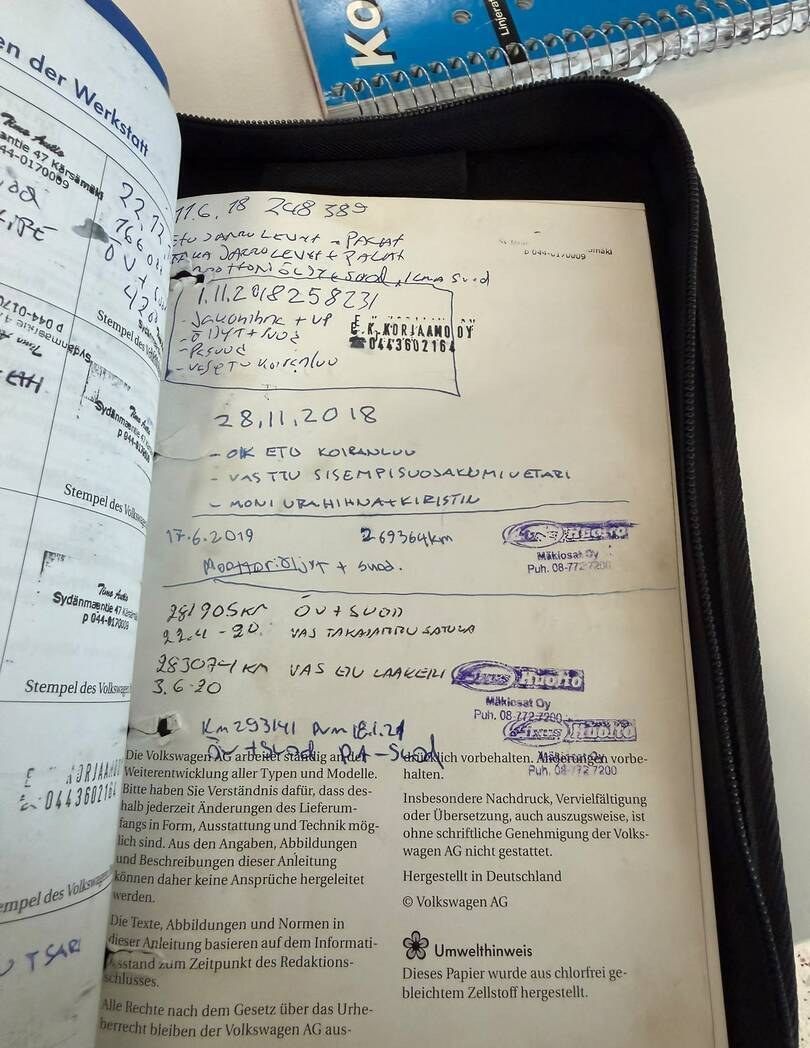 Ko
Linjera
en der Werkstatt
Timo Autio
antie 47 Kärsämäki
044-0170009
22.12
ÖV +
Stempel des
Sydänmaentie 4
p 044-017
Timo
Timo Autio
Sydänmaentie 47
p 044-0170
Stempel des Volkswagen
Timo Autio
Sydänmaentie 47 Kärsä
p 044-0170009
Stempel des Volkswagen
E KORJAAMO
☎0443602164
empel des Volkswagen
11.6.18 248 389
p 044-0170009
ETU JARRU LEVYT + PALAT
TAKA JARRU LEVYT + PALAT
MOOTTORIÖLJYT + SUOD, ILMA SUOD
1.11.2018 258231
- Jakohihna + VP
- ÖLJYT + SUOD
- PASUOD
- VAS ETU KOIRANLUU
E.K.KORJAAMO OY
☎0443602164
28.11.2018
- OIK ETU KOIRANLUU
- VAS ETU SISEMPI SUOJAKUMI VETARI
- MONIURAHIHNA + KIRISTIN
17.6.2019 269364km
Moottoriöljyt + suod.
Huolto
Mäkiosat Oy
Puh. 08-772 7200
281905KM ÖV + SUOD
22.4-20. VAS TAKAJARRU SATULA
283074KM VAS ETU LAAKERI
3.6-20
Huolto
Mäkiosat Oy
Puh. 08-772 7200
Km 293141 Pvm 18.1.21
ÖV + Suod PA-Suod
Huolto
Mäkiosat Oy
Puh. 08-772 7200
Die Volkswagen AG arbeitet ständig an der
Weiterentwicklung aller Typen und Modelle.
Bitte haben Sie Verständnis dafür, dass des-
halb jederzeit Änderungen des Lieferum-
fangs in Form, Ausstattung und Technik mög-
lich sind. Aus den Angaben, Abbildungen
und Beschreibungen dieser Anleitung
können daher keine Ansprüche hergeleitet
werden.
Die Texte, Abbildungen und Normen in
dieser Anleitung basieren auf dem Informati-
onsstand zum Zeitpunkt des Redaktions-
schlusses.
Alle Rechte nach dem Gesetz über das Urhe-
berrecht bleiben der Volkswagen AG aus-
drücklich vorbehalten. Änderungen vorbe-
halten.
Insbesondere Nachdruck, Vervielfältigung
oder Übersetzung, auch auszugsweise, ist
ohne schriftliche Genehmigung der Volks-
wagen AG nicht gestattet.
Hergestellt in Deutschland
© Volkswagen AG
Umwelthinweis
Dieses Papier wurde aus chlorfrei ge-
bleichtem Zellstoff hergestellt.